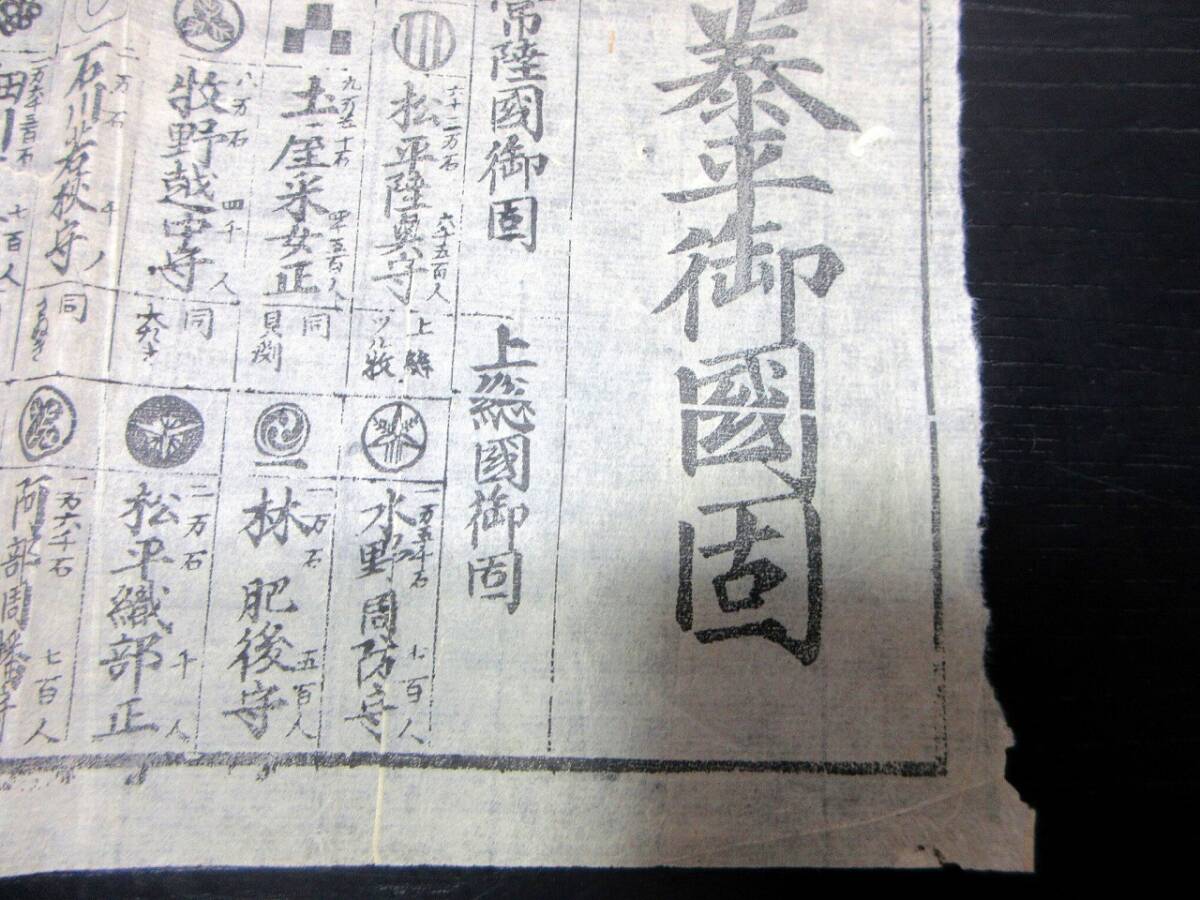 泰平御國固
常陸國御固
六十二万石
松平陸奥守
六千五百人
上総
九万五千石
土屋采女正
四千五百人
同
八万石
牧野越中守
四千人
同
二万石
石川若狭守
千人
同
七百人
上総國御固
一万五千石
水野周防守
七百人
一万石
林肥後守
五百人
二万石
松平織部正
千人
一万六千石
阿部因幡守
七百人